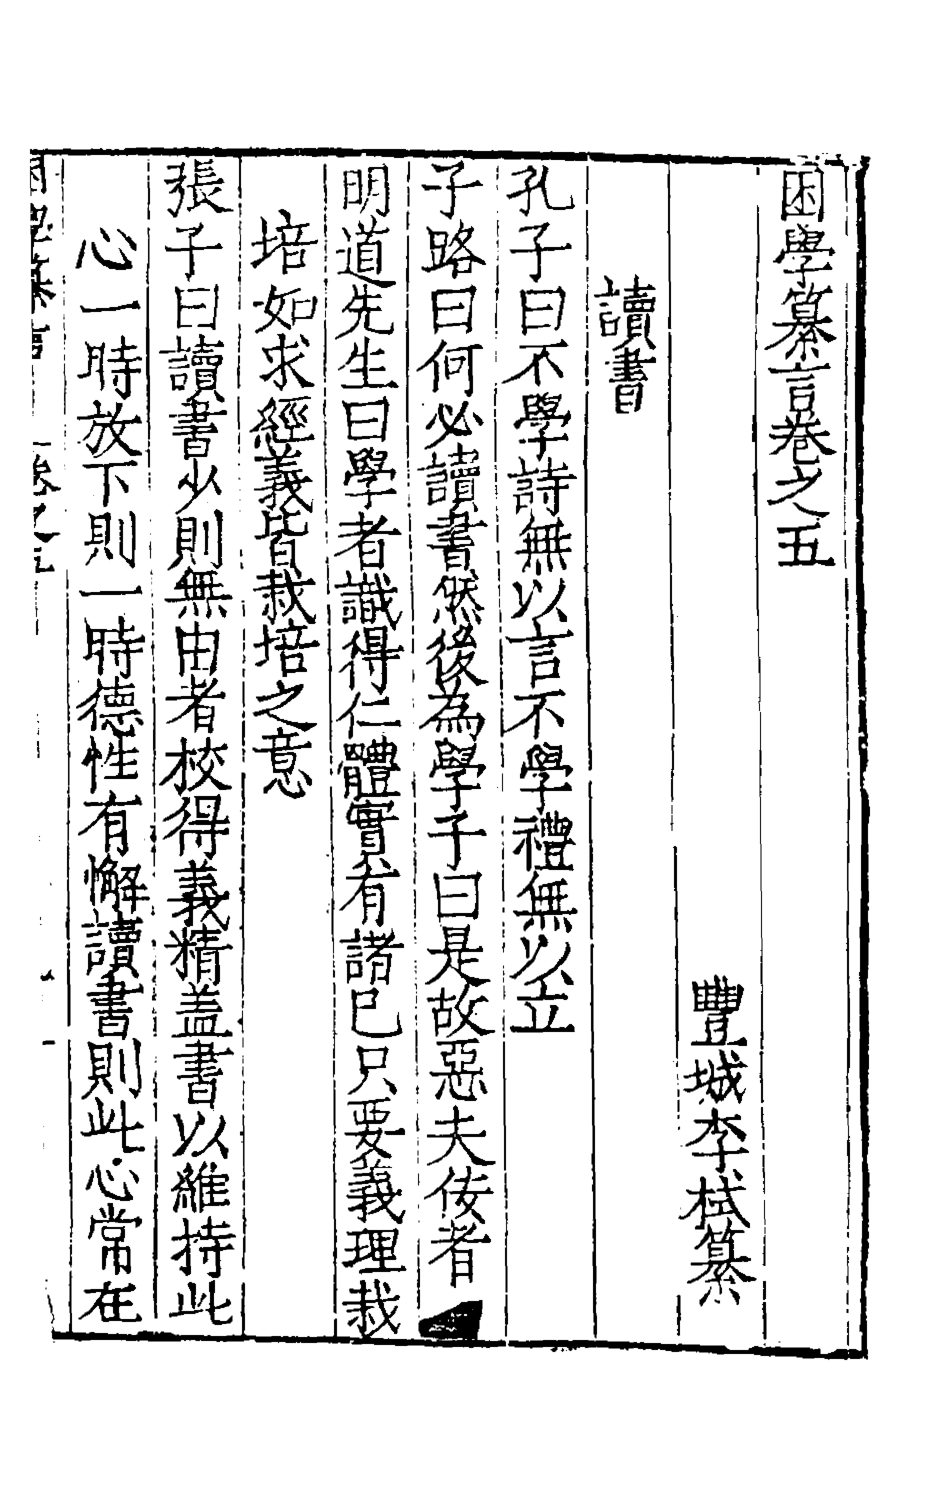 困學纂言卷之五
豐城李栻纂
讀書
孔子曰不學詩無以言不學禮無以立
子路曰何必讀書然後為學子曰是故惡夫佞者
明道先生曰學者識得仁體實有諸己只要義理栽
培如求經義皆栽培之意
張子曰讀書少則無由者校得義精盖書以維持此
心一時放下則一時德性有懈讀書則此心常在
困學纂言 卷之五